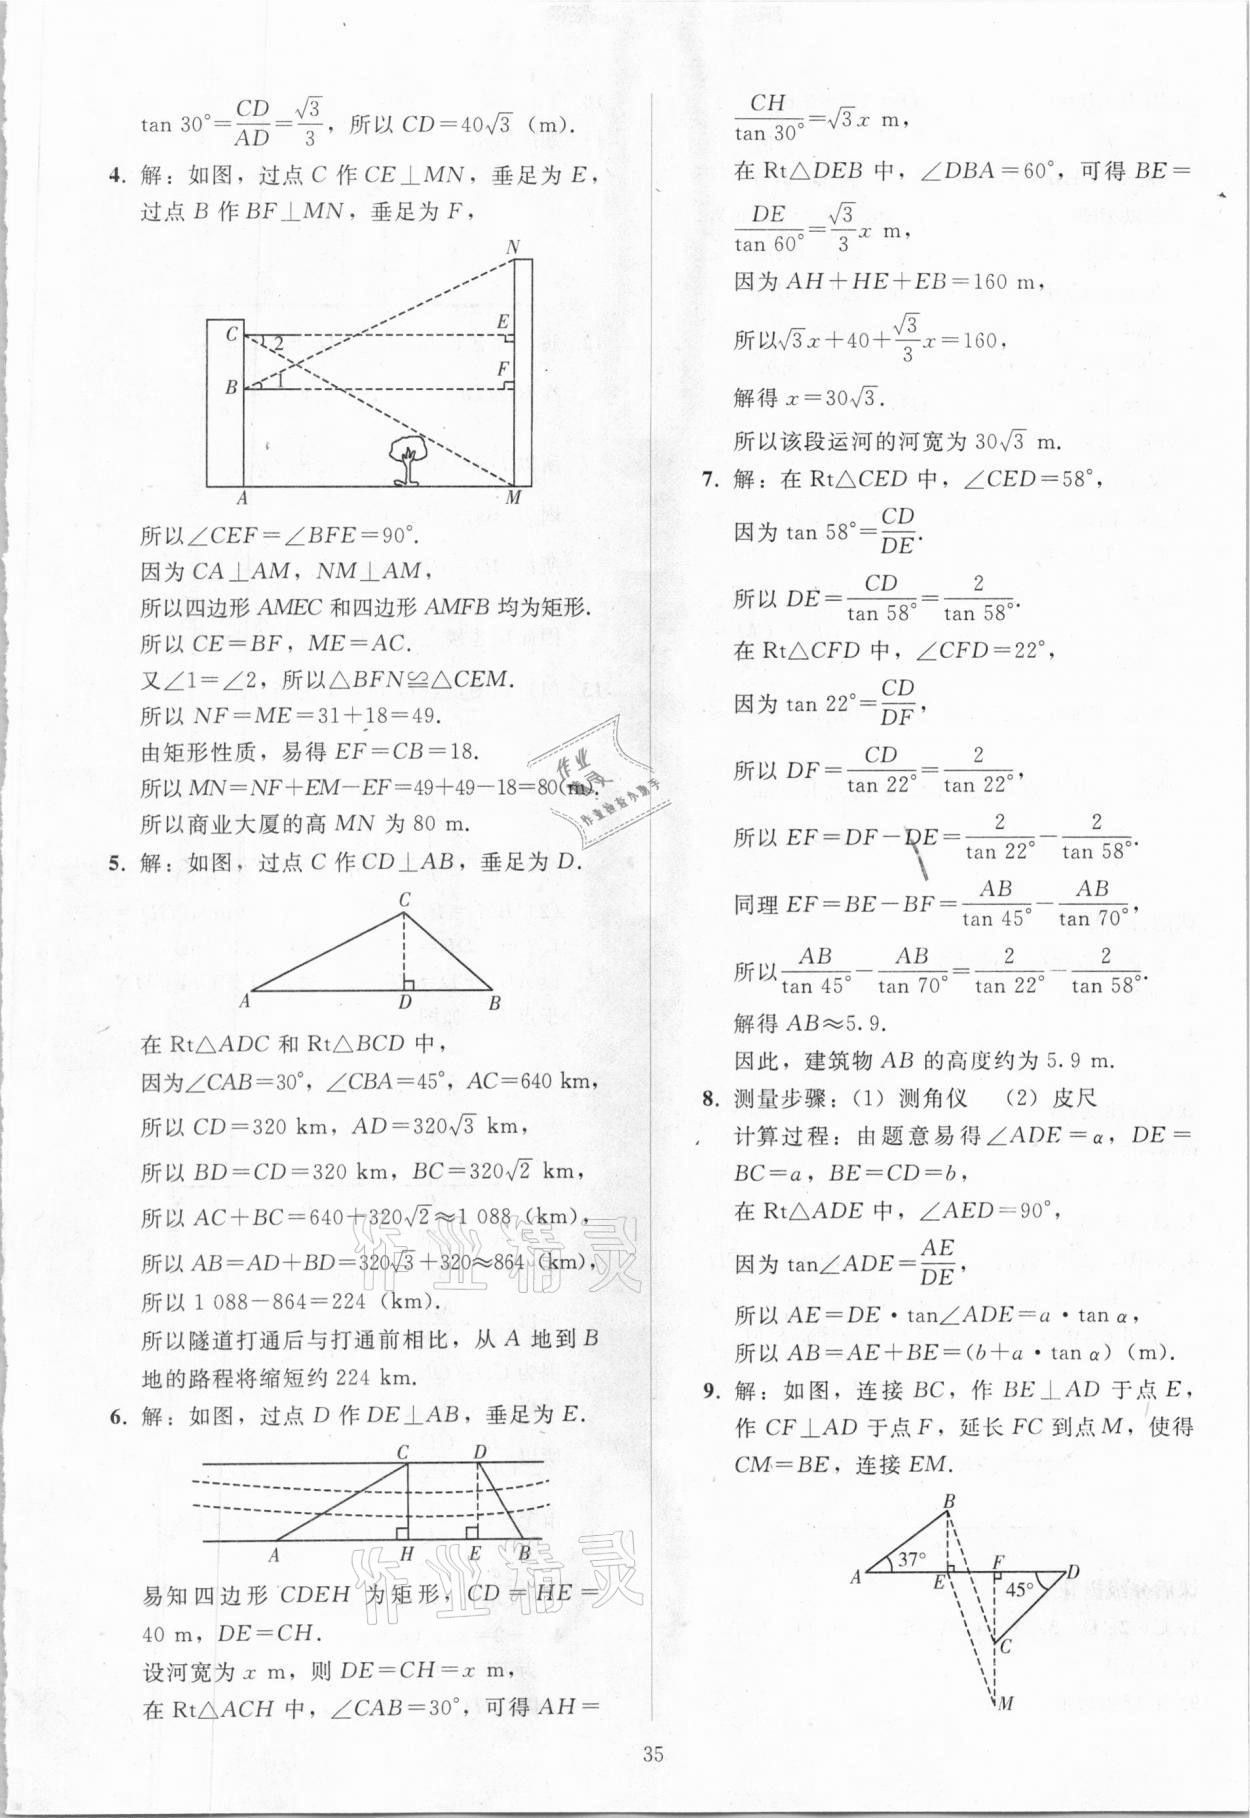 tan 30°=CD/AD=√3/3，所以 CD=40√3（m）.
4. 解：如图，过点 C 作 CE⊥MN，垂足为 E，
过点 B 作 BF⊥MN，垂足为 F，
N
C
2
E
B
1
F
A
M
所以∠CEF=∠BFE=90°.
因为 CA⊥AM，NM⊥AM，
所以四边形 AMEC 和四边形 AMFB 均为矩形.
所以 CE=BF，ME=AC.
又∠1=∠2，所以△BFN≌△CEM.
所以 NF=ME=31+18=49.
由矩形性质，易得 EF=CB=18.
所以 MN=NF+EM-EF=49+49-18=80(m).
所以商业大厦的高 MN 为 80 m.
5. 解：如图，过点 C 作 CD⊥AB，垂足为 D.
C
A
D
B
在 Rt△ADC 和 Rt△BCD 中，
因为∠CAB=30°，∠CBA=45°，AC=640 km，
所以 CD=320 km，AD=320√3 km，
所以 BD=CD=320 km，BC=320√2 km，
所以 AC+BC=640+320√2≈1 088（km），
所以 AB=AD+BD=320√3+320≈864（km），
所以 1 088-864=224（km）.
所以隧道打通后与打通前相比，从 A 地到 B
地的路程将缩短约 224 km.
6. 解：如图，过点 D 作 DE⊥AB，垂足为 E.
C
D
A
H
E
B
易知四边形 CDEH 为矩形，CD=HE=
40 m，DE=CH.
设河宽为 x m，则 DE=CH=x m，
在 Rt△ACH 中，∠CAB=30°，可得 AH=
CH/tan 30°=√3x m，
在 Rt△DEB 中，∠DBA=60°，可得 BE=
DE/tan 60°=√3/3 x m，
因为 AH+HE+EB=160 m，
所以√3x+40+√3/3 x=160，
解得 x=30√3.
所以该段运河的河宽为 30√3 m.
7. 解：在 Rt△CED 中，∠CED=58°，
因为 tan 58°=CD/DE.
所以 DE=CD/tan 58°=2/tan 58°.
在 Rt△CFD 中，∠CFD=22°，
因为 tan 22°=CD/DF，
所以 DF=CD/tan 22°=2/tan 22°，
所以 EF=DF-DE=2/tan 22°-2/tan 58°.
同理 EF=BE-BF=AB/tan 45°-AB/tan 70°，
所以AB/tan 45°-AB/tan 70°=2/tan 22°-2/tan 58°.
解得 AB≈5.9.
因此，建筑物 AB 的高度约为 5.9 m.
8. 测量步骤：（1）测角仪 （2）皮尺
计算过程：由题意易得∠ADE=α，DE=
BC=a，BE=CD=b，
在 Rt△ADE 中，∠AED=90°，
因为 tan∠ADE=AE/DE，
所以 AE=DE·tan∠ADE=a·tan α，
所以 AB=AE+BE=(b+a·tan α)（m）.
9. 解：如图，连接 BC，作 BE⊥AD 于点 E，
作 CF⊥AD 于点 F，延长 FC 到点 M，使得
CM=BE，连接 EM.
B
A
37°
E
F
45°
D
C
M
35
作业精灵
作业检查小助手
作业精灵
作业精灵